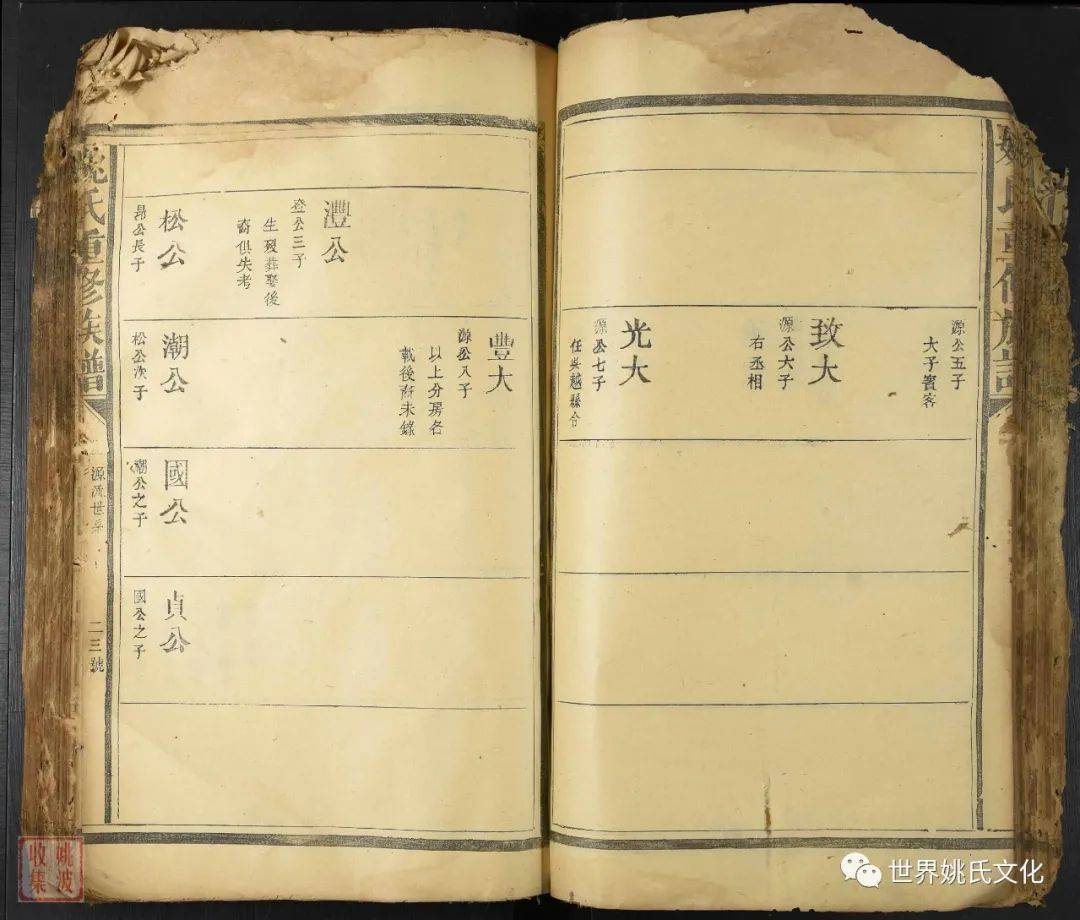 源公五子
太子賓客
致大
源公六子
右丞相
光大
源公七子
任吳越縣令
豐大
源公八子
以上分房各
載後裔未錄
灃公
登公三子
生歿葬娶後
裔俱失考
松公
昂公長子
潮公
松公次子
國公
潮公之子
貞公
國公之子
姚氏重修族譜
源流世系
二三號
姚氏重修族譜
姚波
收集
世界姚氏文化